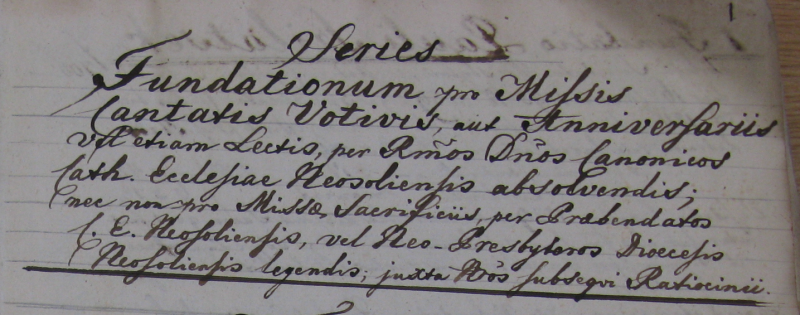 1
Series
Fundationum pro Missis
Cantatis Votivis, aut Anniversariis
vel etiam Lectis, per Rm̃os Dños Canonicos
Cath. Ecclesiae Neosoliensis absolvendis;
nec non pro Missæ Sacrificiis, per Præbendatos
C. E. Neosoliensis, vel Neo-Presbyteros Dioecesis
Neosoliensis legendis; juxta subseqvi Ratiocinii.